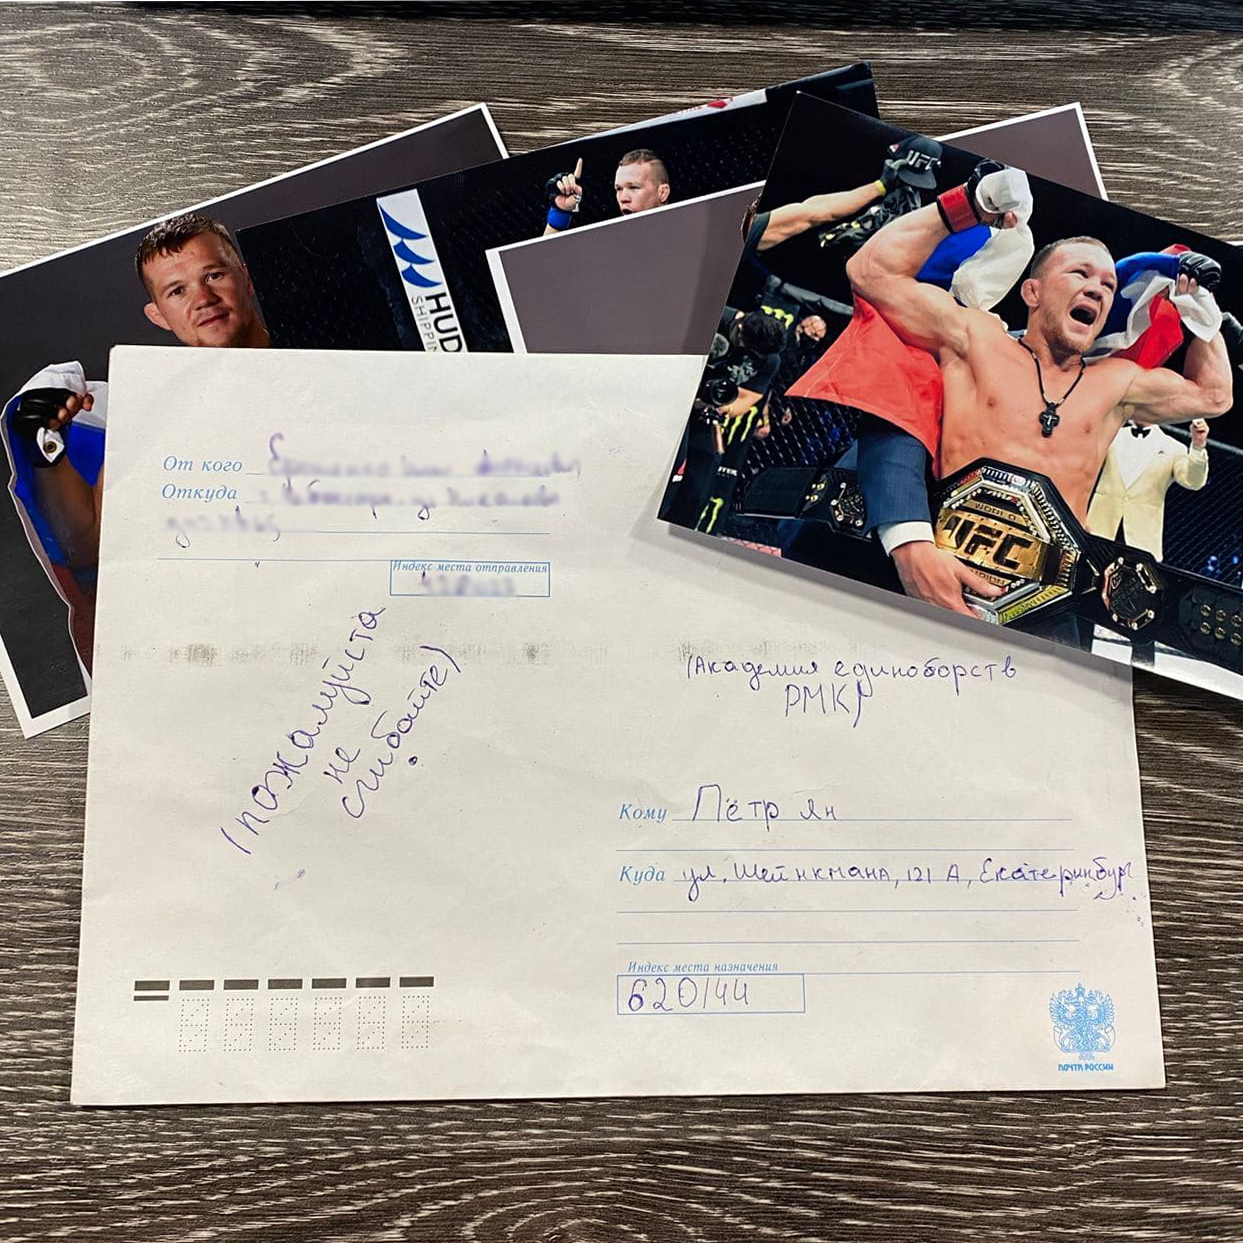 UFC
HUD
SHIPPIN
WORLD
UFC
От кого
Откуда
Индекс места отправления
(пожалуйста
не
сгибайте)
(Академия единоборств
РМК)
Кому Пётр Ян
Куда ул. Шейнкмана, 121 А, Екатеринбург
Индекс места назначения
620144
ПОЧТА РОССИИ